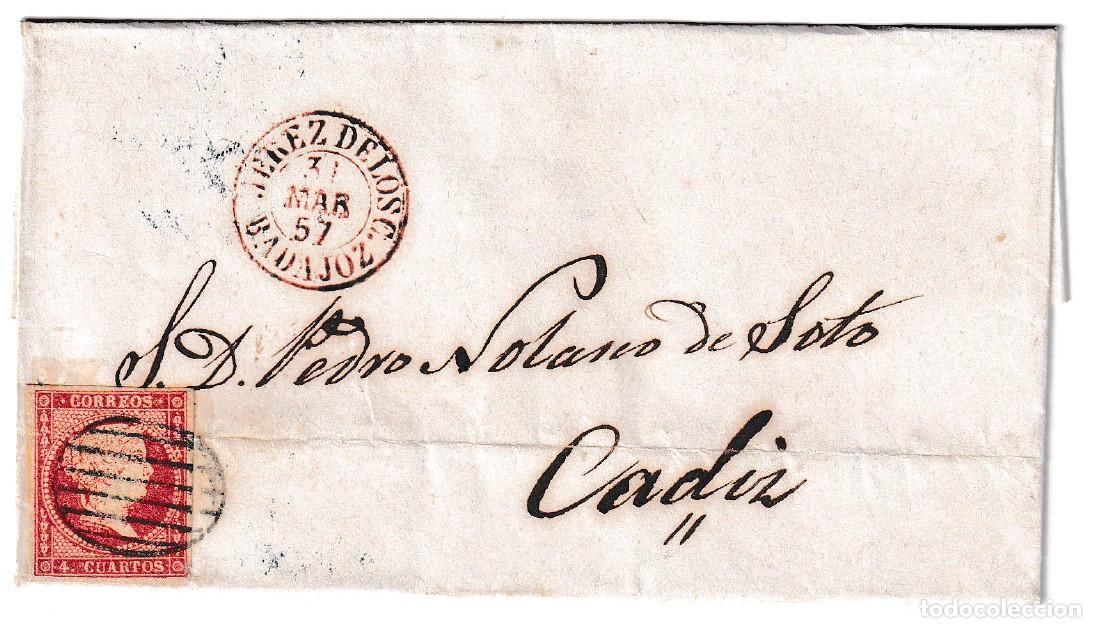 JEREZ DE LOS C.
31
MAR
57
BADAJOZ
S. D. Pedro Solano de Soto
Cadiz
CORREOS
4. CUARTOS
todocoleccion